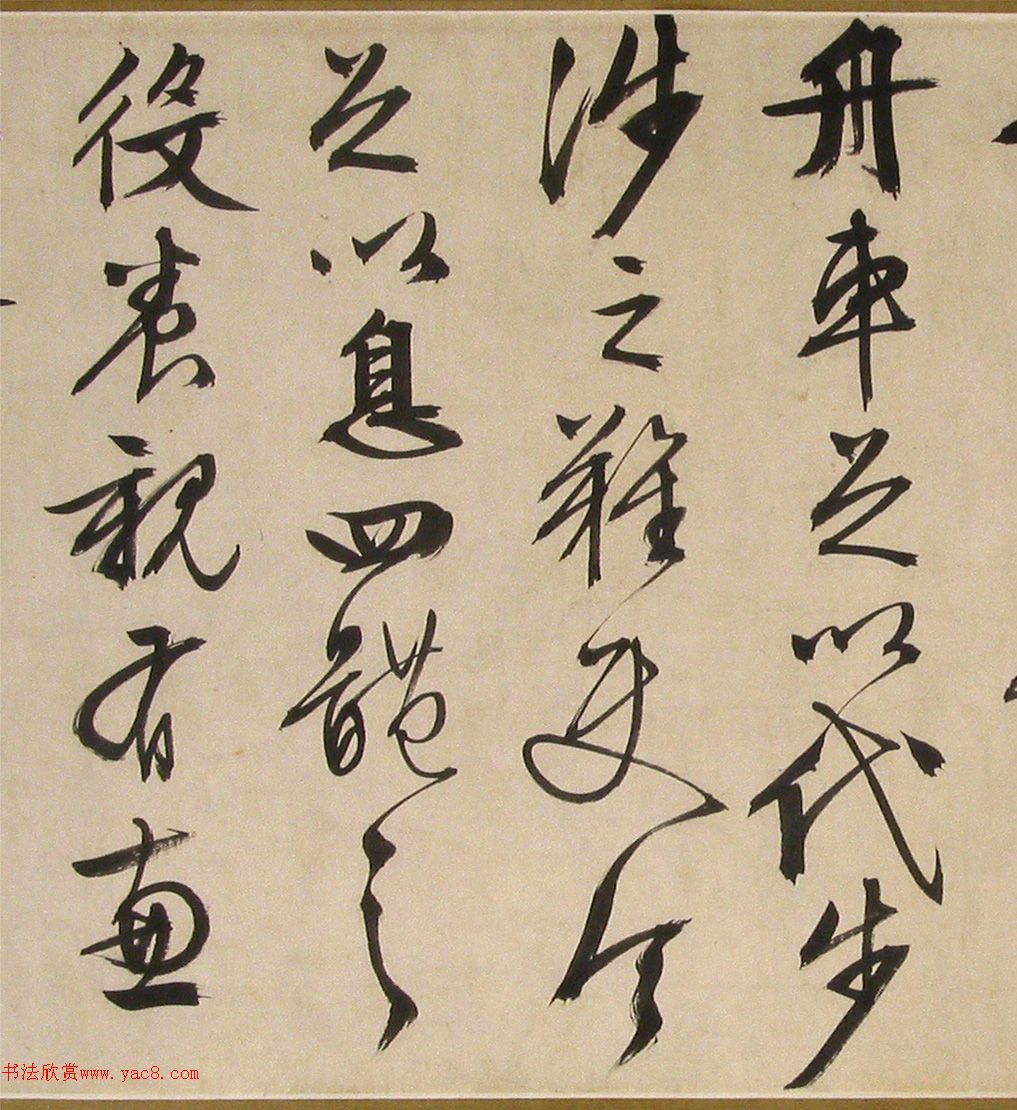 舟車足以代步
涉之難使令
足以息四體之
役養親有兼
书法欣赏www.yac8.com